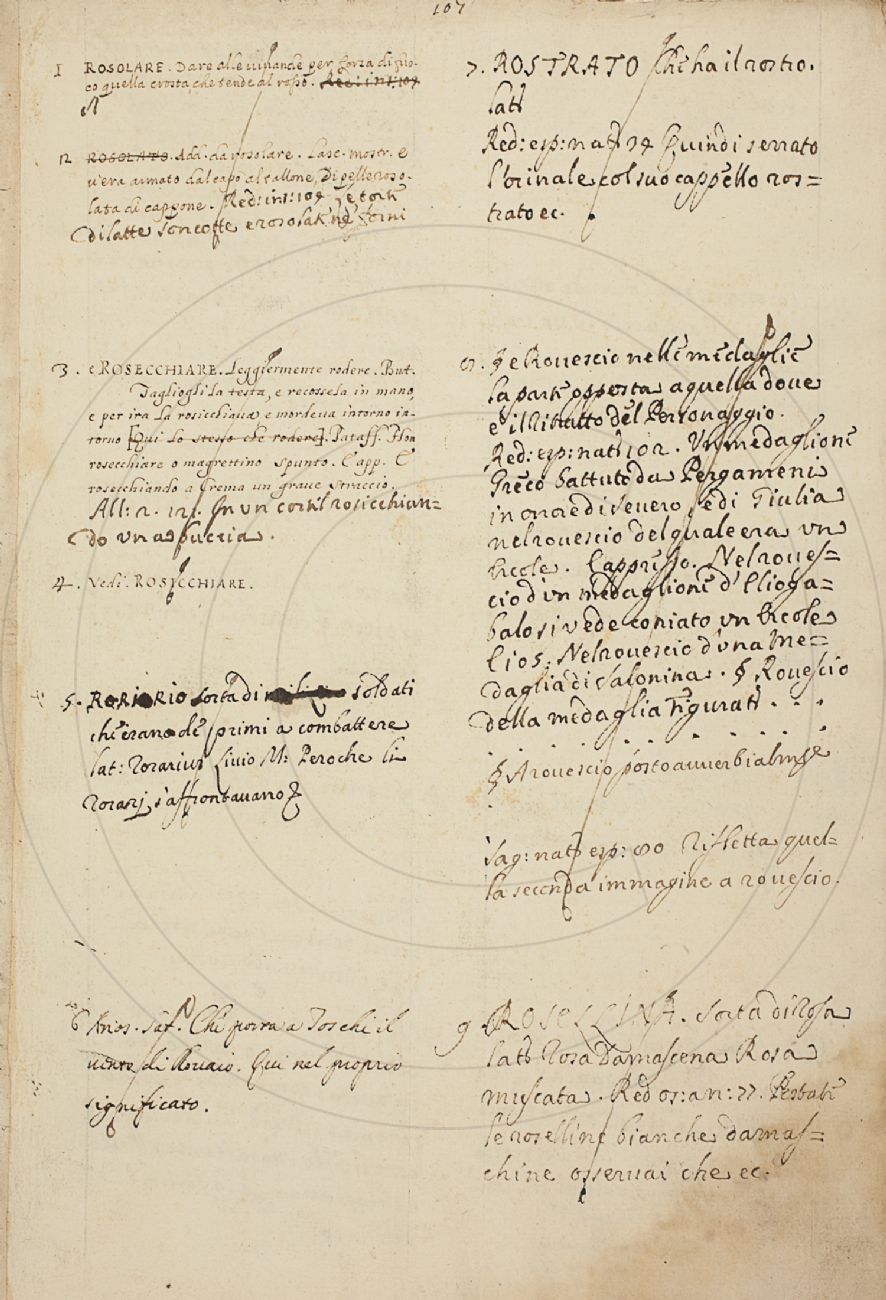 107
1 ROSOLARE. Dare alle vivande per forza di fuo-
co quella crosta, che tende al rosso. Red: ins: 107
12 ROSOLATO. Add. da rosolare. Lasc. mostr. E
v'era armato dal capo al tallone, Di pelle roso-
lata di cappone. Red: ins: 104
di latte son cotte e rosolate ne forni
3. e ROSECCHIARE. Leggiermente rodere. But.
Tagliogli la testa, e recossela in mano,
e per ira la rosicchiava e mordeva intorno in-
torno [Qui lo stesso che rodere]. Pataff. Non
rosecchiare o magrettino spunto. E app. E
rosecchiando a frema un grave straccio.
All: 2. 121. In un cortil rosicchian=
do una buccia.
4. Vedi. ROSICCHIARE.
5. RORARIO sorta di soldati
ch'erano de primi a combattere
lat: Rorarius Livio M: Peroche li
Rorarj s'affrontavano
6 Arios. Sat. Che porra a Toschi il
vento di Rovaio. Qui nel proprio
significato.
7. ROSTRATO Che ha il rostro.
lat:
Red: esp: nat: 24 Quindi serrato
l'orinale col suo cappello ros=
trato ec.
8. § e Rovescio nelle medaglie
la parte opposta a quella dove
è il Ritratto del Personaggio.
Red: esp: nat: 102. Un medaglione
Greco battuto da Pergameni
in onore di Severo, e di Giulia
nel rovescio del quale era un
Ercole. E appresso. Nel roves=
cio d'un medaglione d'Elioga=
balo si vede coniato un Ercole
E 105. Nel rovescio d'una me=
daglia di Salonina. § Rovescio
della medaglia Figurat: . . .
. . . . . . . . .
§ A rovescio posto avverbialm:te
.
Sag: nat: esp: 80 Rifletta quel=
la seconda immagine a rovescio.
9 ROSELLINA. Sorta di Rosa
lat: Rosa Damascena Rosa
muscata. Red os: an: 77.
le roselline bianche damas=
chine osservai che ec.